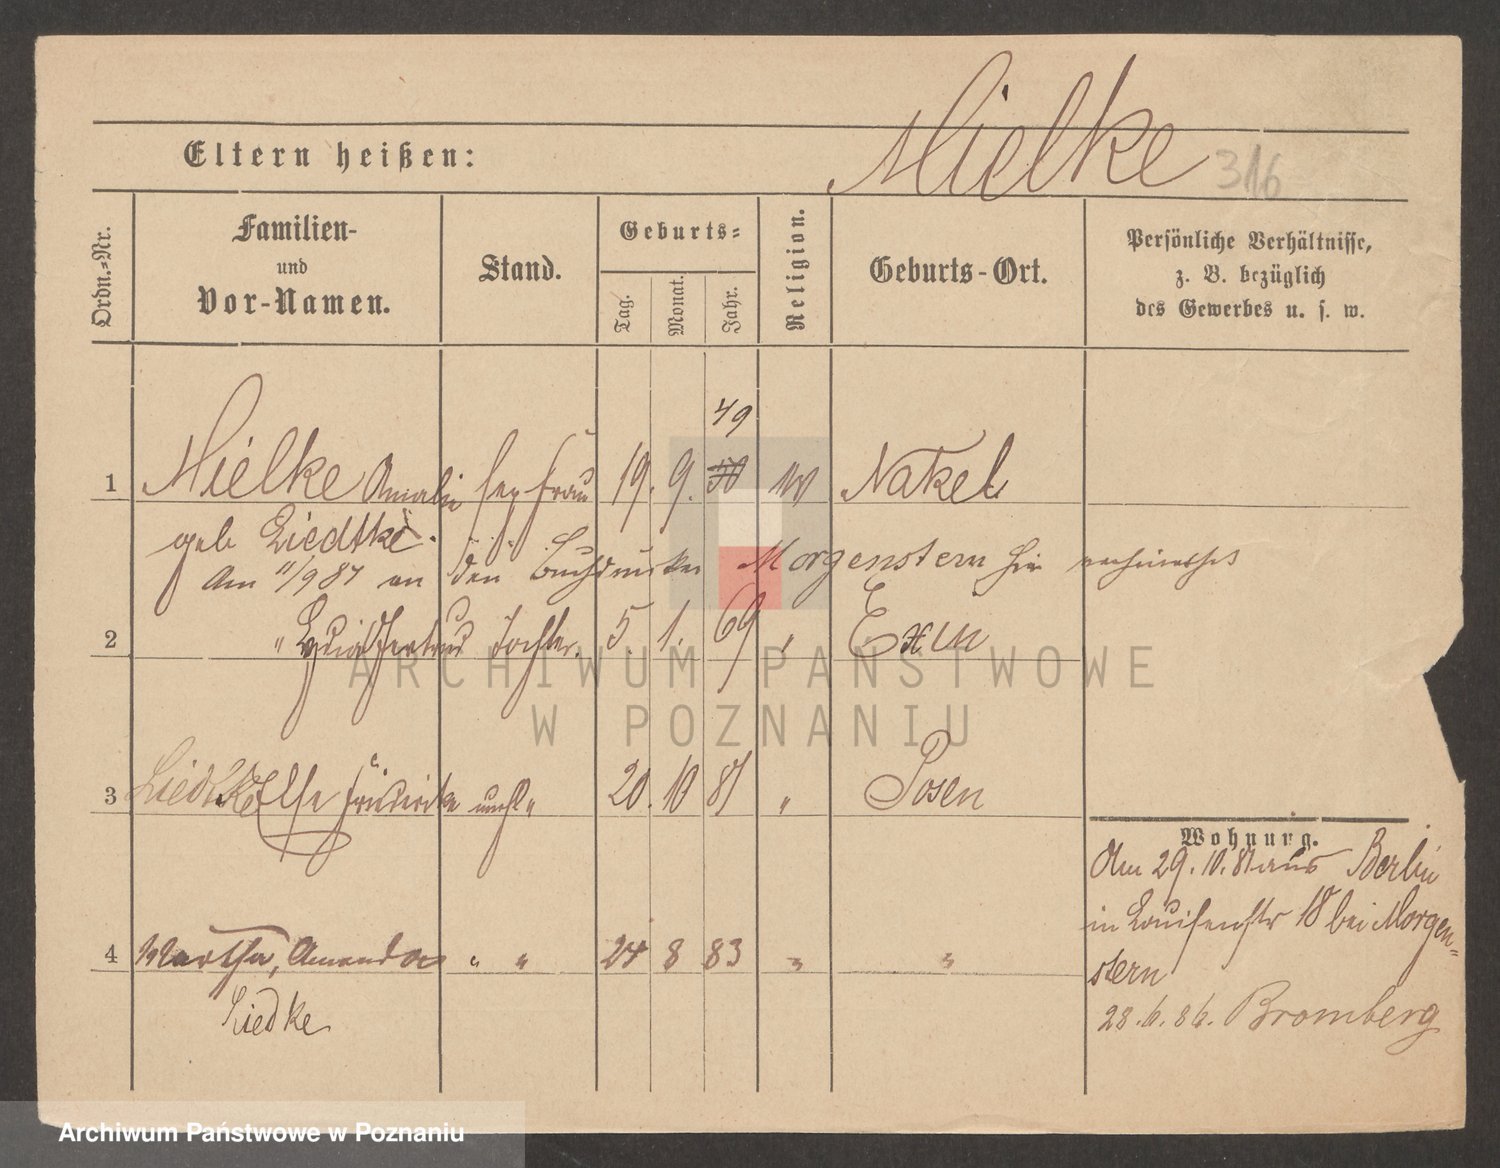 Mielke
Eltern heißen:
316
Ordn.-Nr.
Familien-
und
Vor-Namen.
Stand.
Geburts-
Tag.
Monat.
Jahr.
Religion.
Geburts-Ort.
Persönliche Verhältnisse,
z. B. bezüglich
des Gewerbes u. s. w.
49
1 Mielke Amalie sep Frau 19. 9. 50 Nakel
geb Liedtke.
Am 11/9 87 an den Buchdrucker Morgenstern hier verheirathet
2 " Lydia Gertrud Tochter. 5. 1. 69 " Exin
ARCHIWUM PAŃSTWOWE
W POZNANIU
3 Liedtke Else Friederike unehl " 20. 10 81 " Posen
Wohnung.
Am 29. 10. 81 aus Berlin
in Louisenstr 18 bei Morgen-
stern
4 Martha, Amanda " " 24 8 83 " "
Liedke
28. 6. 86. Bromberg
Archiwum Państwowe w Poznaniu